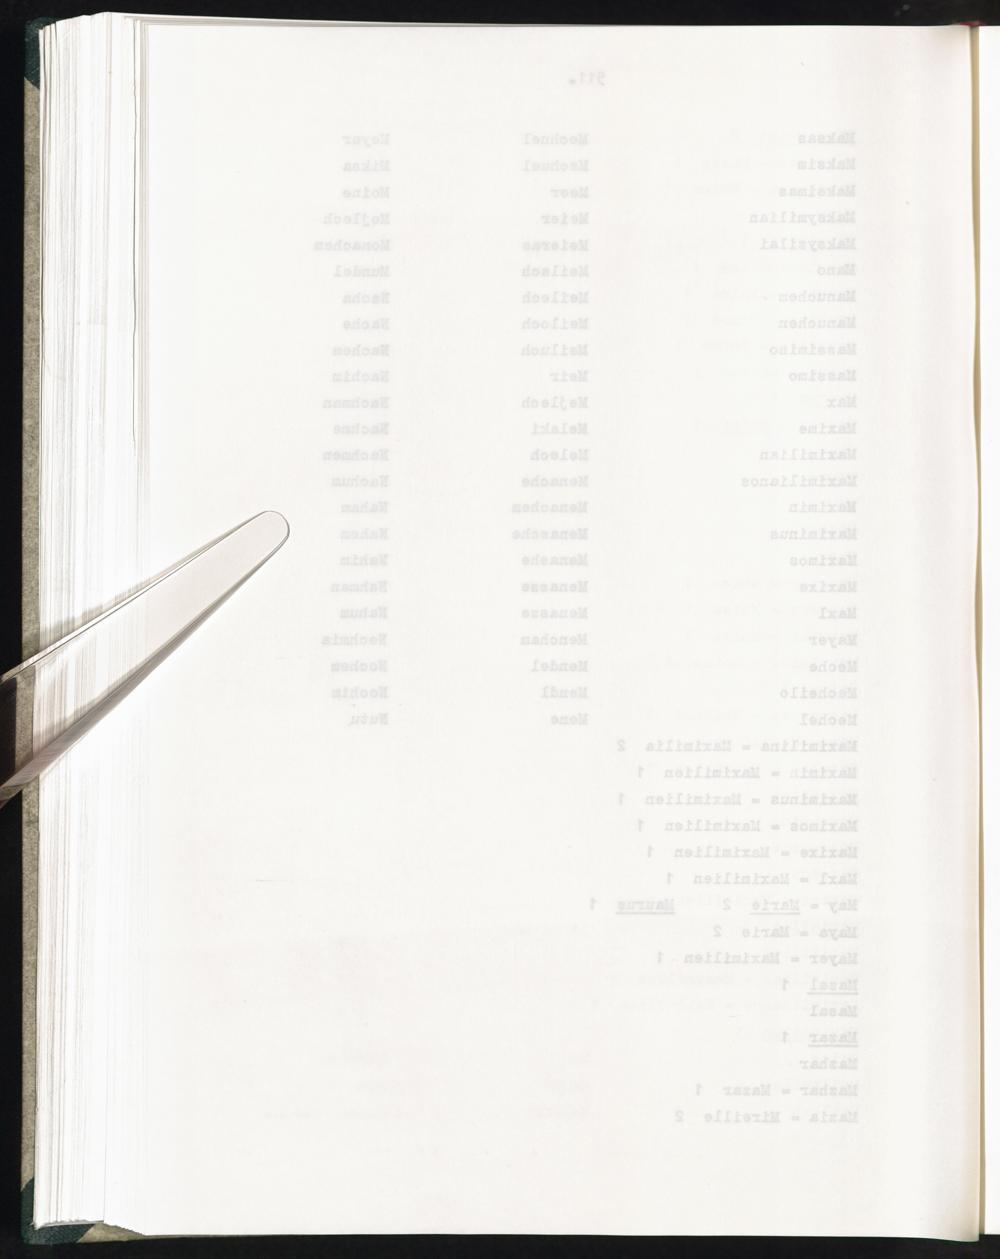 511.
Maksas Mechnel Meyer
Maksim Mechuel Miksa
Maksimas Meer Moine
Maksymilian Meier Mojlech
Maksyzilai Meieras Monachem
Mano Meilach Mundel
Manuchem Meilech Nacha
Manuchen Meiloch Nache
Massimino Meiluch Nachem
Massimo Meir Nachim
Max Mejlech Nachman
Maxime Melaki Nachme
Maximilian Melech Nachmen
Maximilianos Menache Nachum
Maximin Menachem Naham
Maximinus Menasche Nahem
Maximos Menashe Nahim
Maxixe Menasse Nahman
Maxl Menasze Nahum
Mayer Mencham Nechmia
Meche Mendel Nochem
Mecheilo Mendl Nochim
Mechel Mene Nutu
Maximilina = Maximilia 2
Maximin = Maximilien 1
Maximinus = Maximilien 1
Maximos = Maximilien 1
Maxixe = Maximilien 1
Maxl = Maximilien 1
May = Marie 2 Maurus 1
Maya = Marie 2
Mayer = Maximilien 1
Mazal 1
Mazar 1
Mazhar
Mazhar = Mazar 1
Mazia = Mireille 2